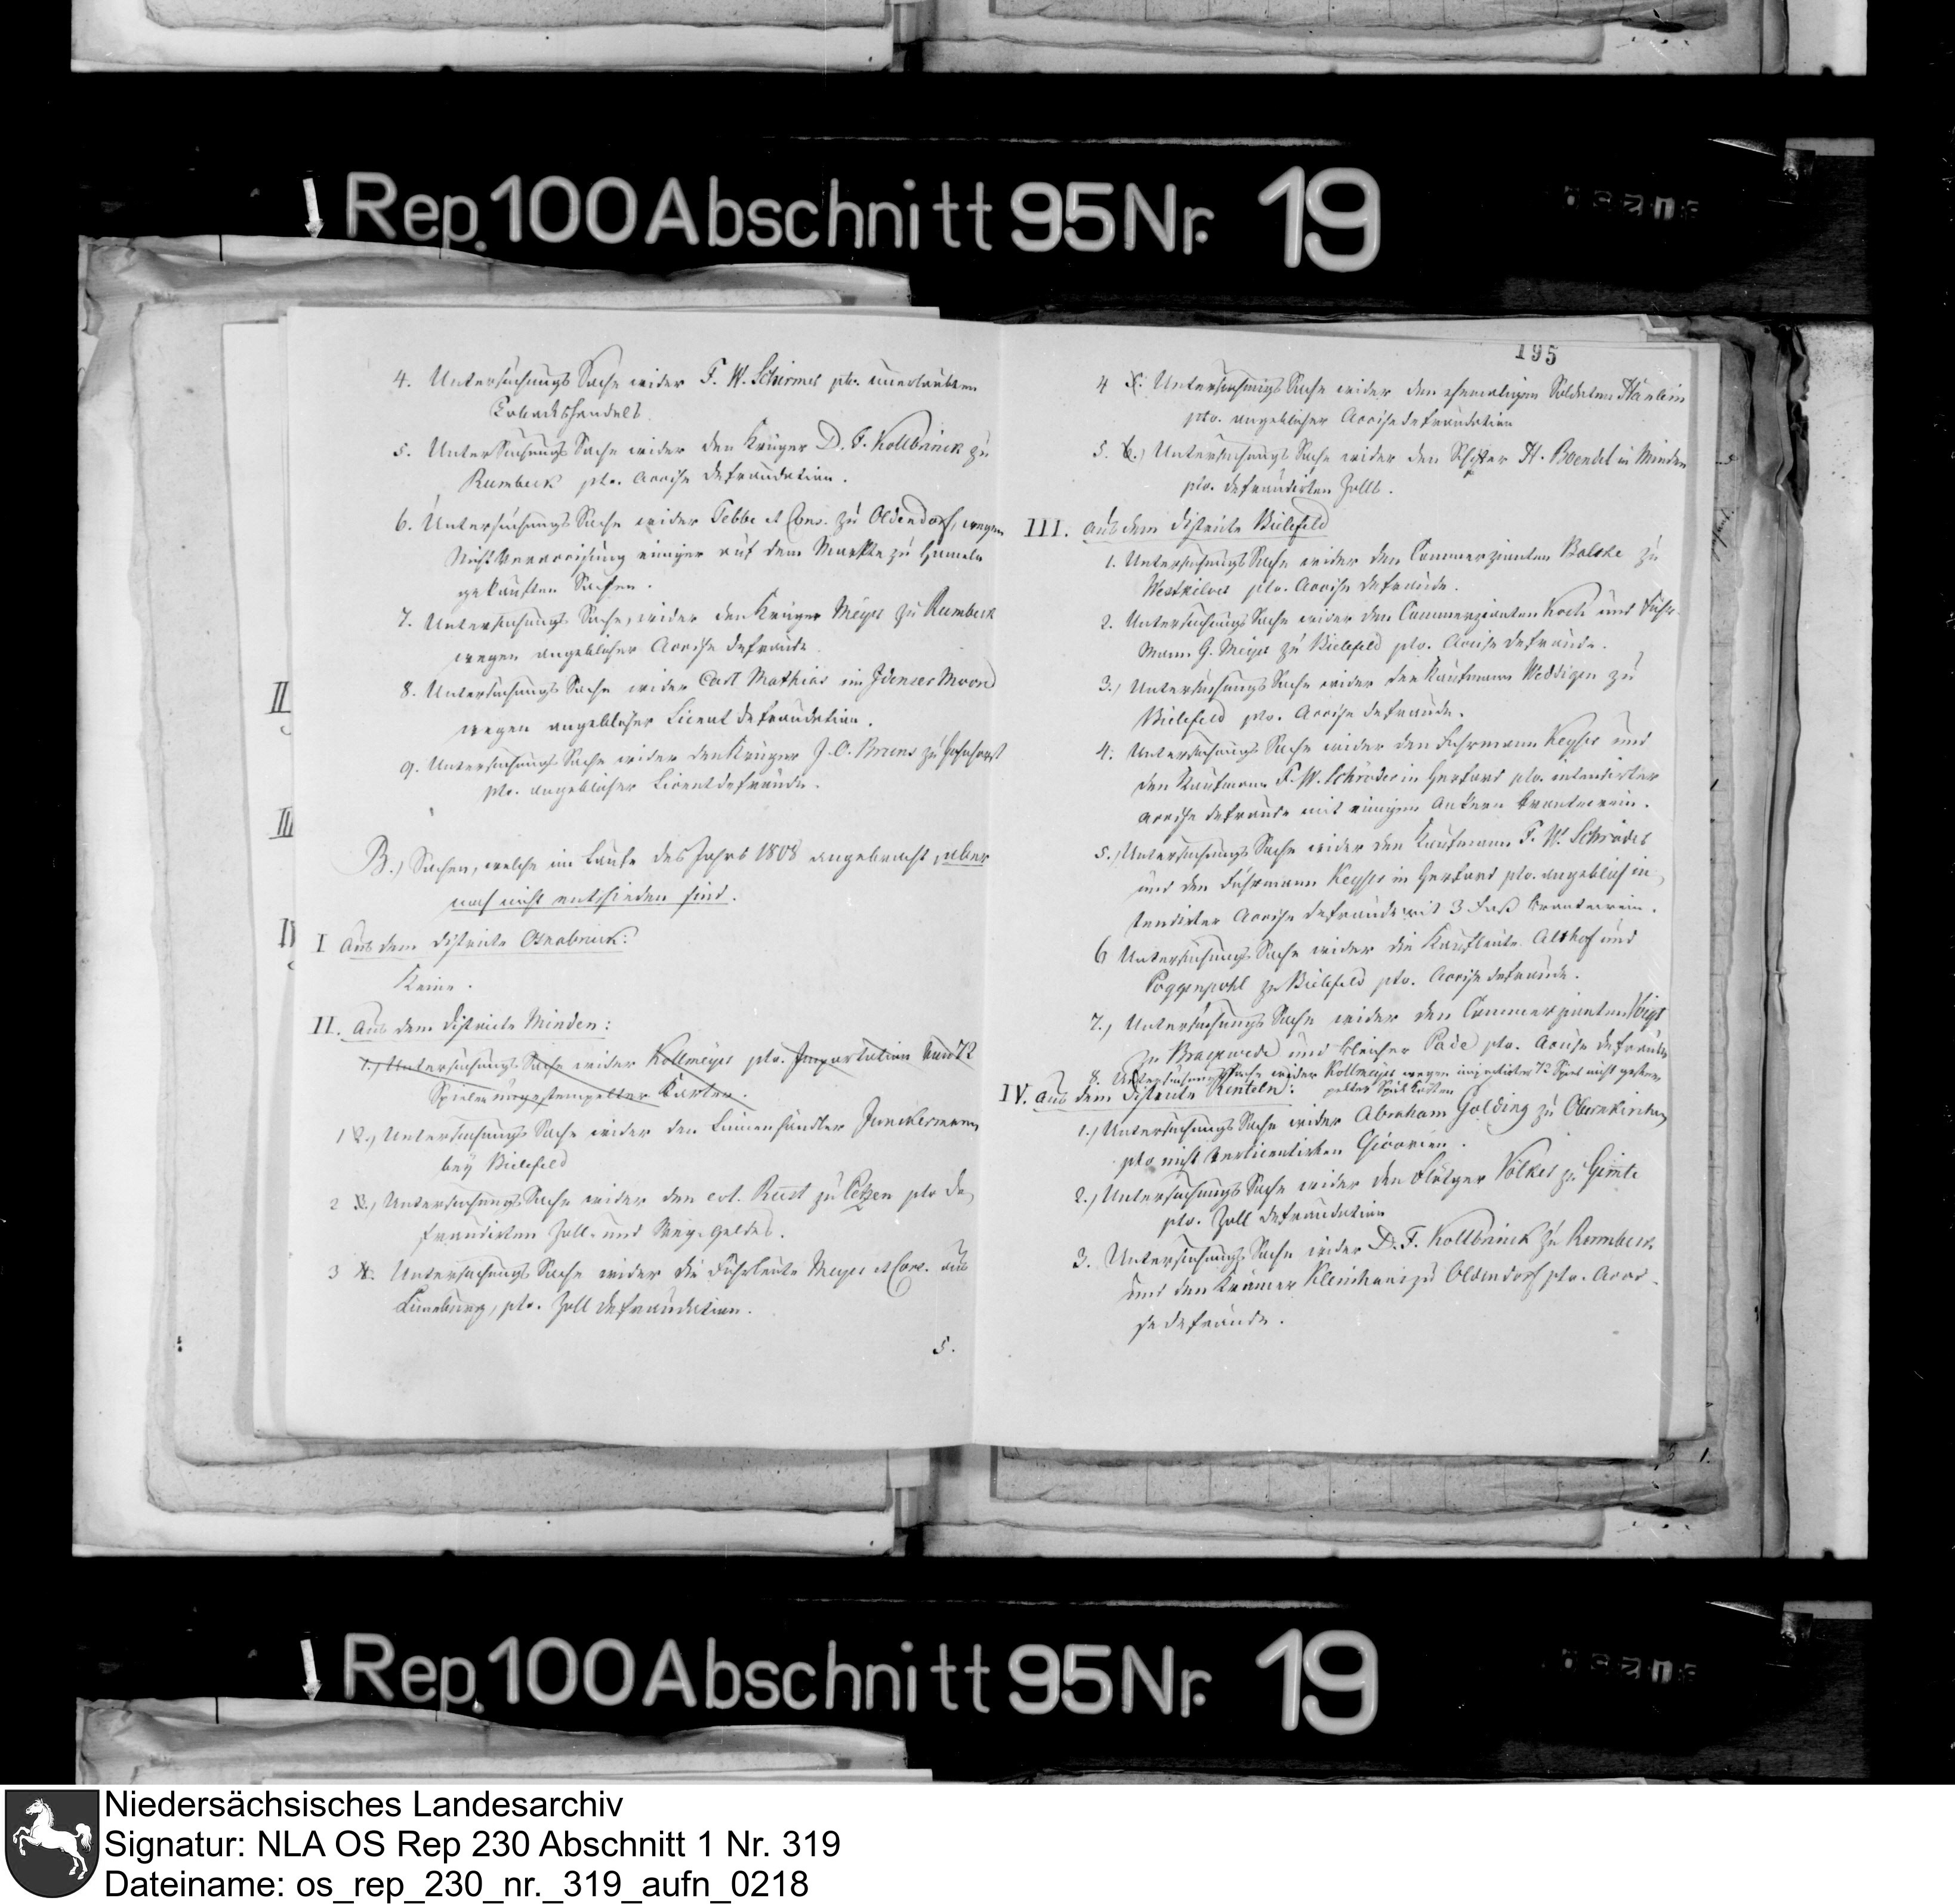 Rep. 100 Abschnitt 95 Nr. 19
4. Untersuchungs Sache wider F. W. Schirmer pto. unerlaubten
Tobackshandels
5. Untersuchungs Sache wider den Krüger D. F. Kollbrinck zu
Rumbeck pto. Accise defraudation.
6. Untersuchungs Sache wider Tebbe et Cons. zu Oldendorf, wegen
Nichtveraccisung einiger auf dem Markte zu Hameln
gekauften Sachen.
7. Untersuchungs Sache, wider den Krüger Meyer zu Rumbeck
wegen angeblicher Accise defraude
8. Untersuchungs Sache wider Carl Mathias im Idenser Moor
wegen angeblicher Licent defraudation.
9. Untersuchungs Sache wider den Krüger J. C. Bruns zu Hohnhorst
pto. angeblicher Licentdefraude.
B.) Sachen, welche im Laufe des Jahrs 1808 angebracht, aber
noch nicht entschieden sind.
I Aus dem Districte Osnabrück:
Keine.
II. Aus dem Districte Minden:
1.) Untersuchungs Sache wider Kollmeyer pto. Importation von 72
Spielen ungestempelter Karten.
1 2.) Untersuchungs Sache wider den Linnenhändler Junckermann
bey Bielefeld
2 3.) Untersuchungs Sache wider den Col. Rust zu Petzen pto de
fraudirten Zoll- und Weg-Geldes.
3 4. Untersuchungs Sache wider die Fuhrleute Meyer et Cons. aus
Lüneburg, pto. Zoll defraudation.
5.
195
4 5. Untersuchungs Sache wider den ehemaligen Soldaten Hänlein
pto. angeblicher Accise defraudation
5. 6.) Untersuchungs Sache wider den Schiffer H. Baendel in Minden
pto. defraudirten Zolls.
III. Aus dem Districte Bielefeld
1. Untersuchungs Sache wider den Commerzianten Bolcke zu
Westkilver pto. Accise defraude.
2. Untersuchungs Sache wider den Commerzianten Koch und Fuhr-
mann G. Meyer zu Bielefeld pto. Accise defraude.
3.) Untersuchungs Sache wider den Kaufmann Weddigen zu
Bielefeld pto. Accise defraude.
4. Untersuchungs Sache wider den Fuhrmann Keyser und
den Kaufmann F. W. Schröder in Herford pto. intendirter
Accise defraude mit einigen Ankern Brantwein.
5.) Untersuchungs Sache wider den Kaufmann F. W. Schröder
und den Fuhrmann Keyser in Herford pto. angeblich in
tendirter Accise defraude mit 3 Faß Brantwein.
6 Untersuchungs Sache wider die Kaufleute Althof und
Poggenpohl zu Bielefeld pto. Accise defraude.
7.) Untersuchungs Sache wider den Commerzianten Voigt
zu Brackwede und Bleicher Pade pto. Accise defraude
8. Untersuchungs Sache wider Kollmeyer wegen importirter 72 Spiel nicht gestem
pelter Spiel Karten
IV. Aus dem Districte Rinteln:
1.) Untersuchungs Sache wider Abraham Golding zu Obernkirchen
pto nicht verlicentirten Cichorien.
2.) Untersuchungs Sache wider den Flötzer Völker zu Gimte
pto. Zoll defraudation
3. Untersuchungs Sache wider D. F. Kollbrinck zu Rumbeck
und den Krämer Kleinhans zu Oldendorf pto. Acci-
se defraude.
II
III
IV
Rep. 100 Abschnitt 95 Nr. 19
Niedersächsisches Landesarchiv
Signatur: NLA OS Rep 230 Abschnitt 1 Nr. 319
Dateiname: os_rep_230_nr._319_aufn_0218